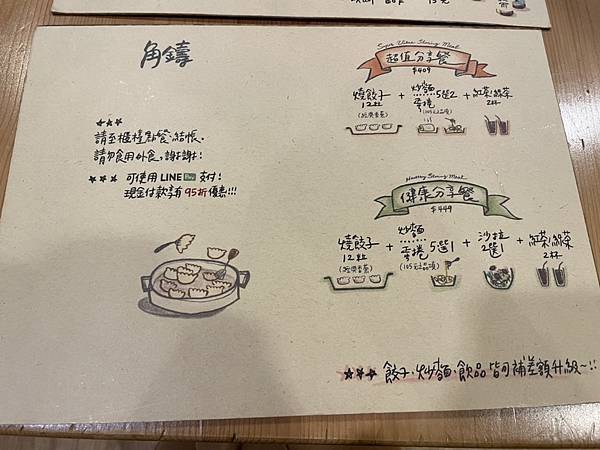 角鑄
★★★
請至櫃檯點餐、結帳.
請勿食用外食,謝謝!
★★★ 可使用LINE Pay支付!
現金付款享有95折優惠!!!
Super Value Sharing Meal
超值分享餐
$409
燒餃子 + 炒麵 5選2 + 紅茶/綠茶
12粒 蛋捲 2杯
(經典香蔥) (105元品項)
Healthy Sharing Meal
健康分享餐
$449
燒餃子 + 炒麵 5選1 + 沙拉 + 紅茶/綠茶
12粒 蛋捲 2選1 2杯
(經典香蔥) (105元品項)
★★★ 餃子、炒麵、飲品皆可補差額升級~!!